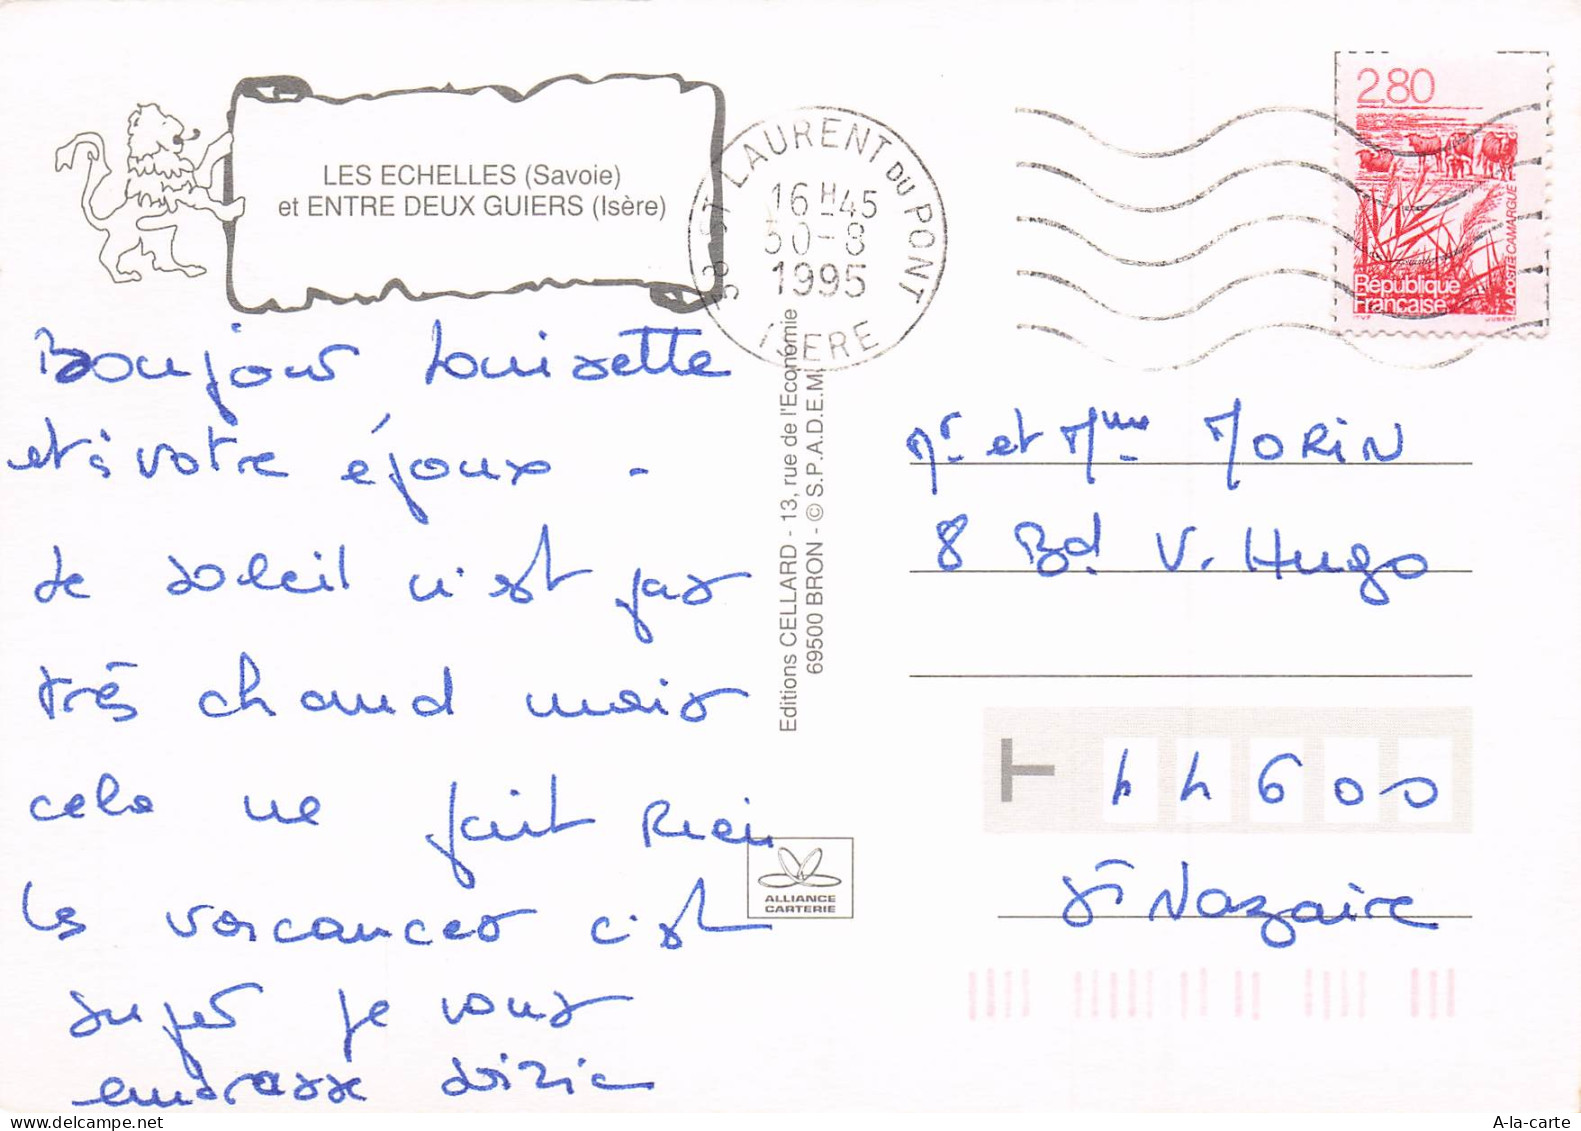 LES ECHELLES (Savoie)
et ENTRE DEUX GUIERS (Isère)
38 ST LAURENT DU PONT
16 H 45
30-8
1995
ISERE
2,80
République
Française
LA POSTE CAMARGUE
Bonjour Louisette
et à votre époux -
Le soleil n'est pas
très chaud mais
cela ne fait Rien
les vacances c'est
super je vous
embrasse
Editions CELLARD - 13, rue de l'Economie
69500 BRON - © S.P.A.D.E.M.
Mr et Mme MORIN
8 Bd V. Hugo
44600
St Nazaire
ALLIANCE
CARTERIE
A-la-carte